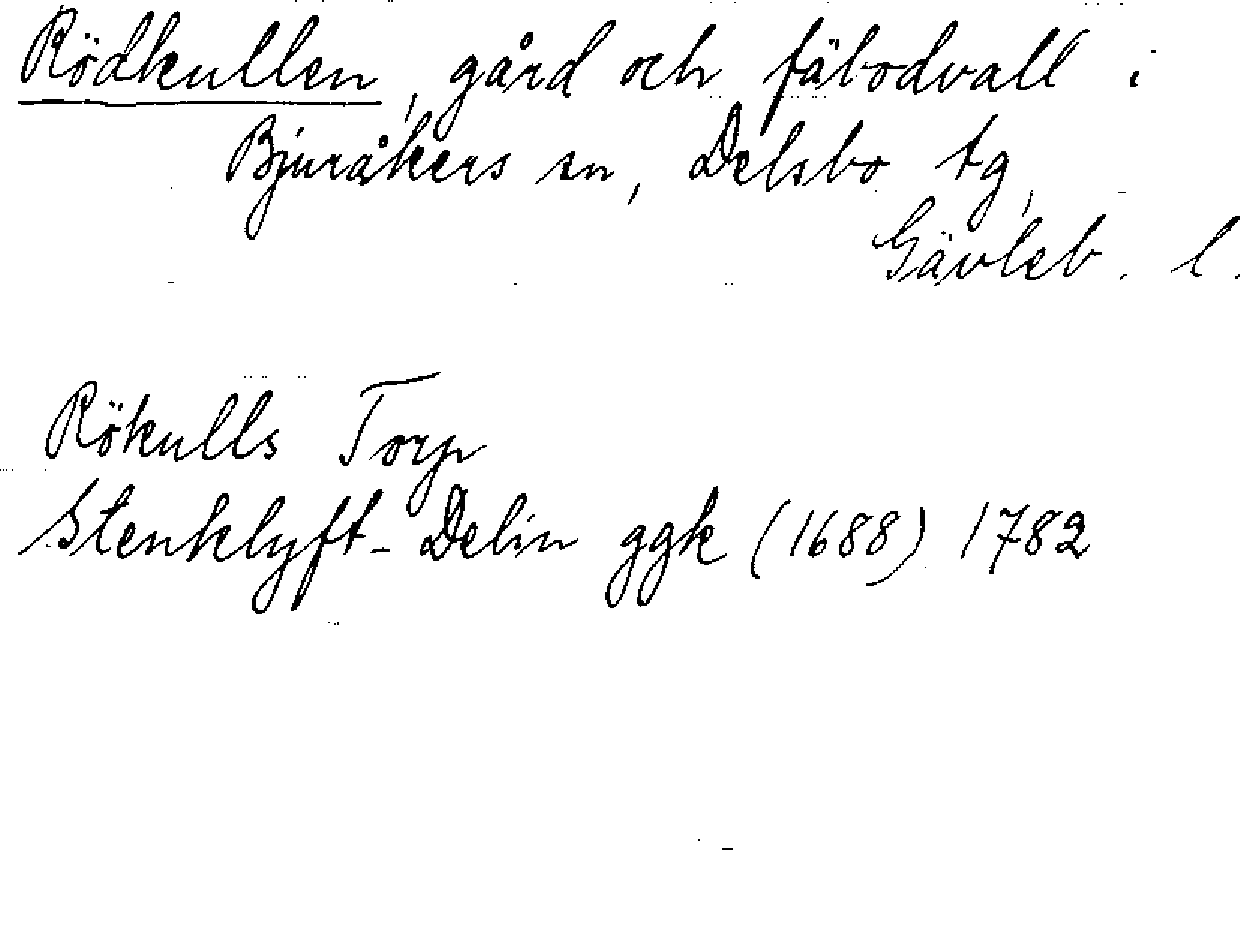 Rödkullen, gård och fäbodvall i
Bjuråkers sn, Delsbo tg,
Gävleb. l.
Rökulls Torp
Stenklyft-Delin ggk (1688) 1782